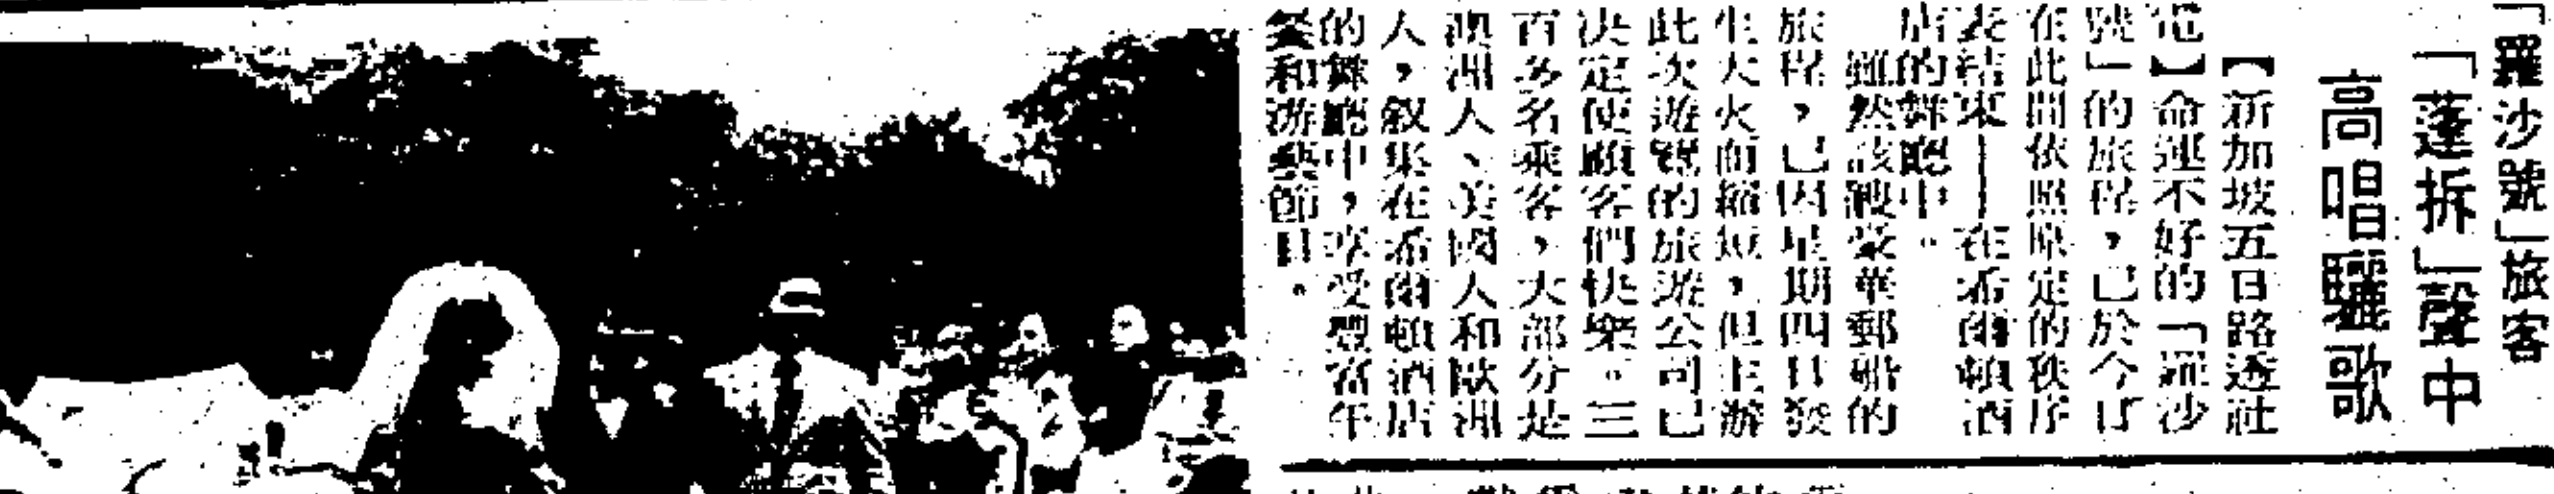 「羅沙號」旅客
「蓬拆」聲中
高唱驪歌
【新加坡五日路透社
電】命運不好的「羅沙
號」的旅程，已於今日
在此間依照原定的秩序
表結束——在希爾頓酒
店的舞廳中。
雖然該艘豪華郵船的
旅程，已因星期四日發
生大火而縮短，但主辦
此次遊覽的旅遊公司已
決定使顧客們快樂。三
百多名乘客，大部分是
澳洲人、美國人和歐洲
人，叙集在希爾頓酒店
的舞廳中，享受豐富午
餐和游藝節目。